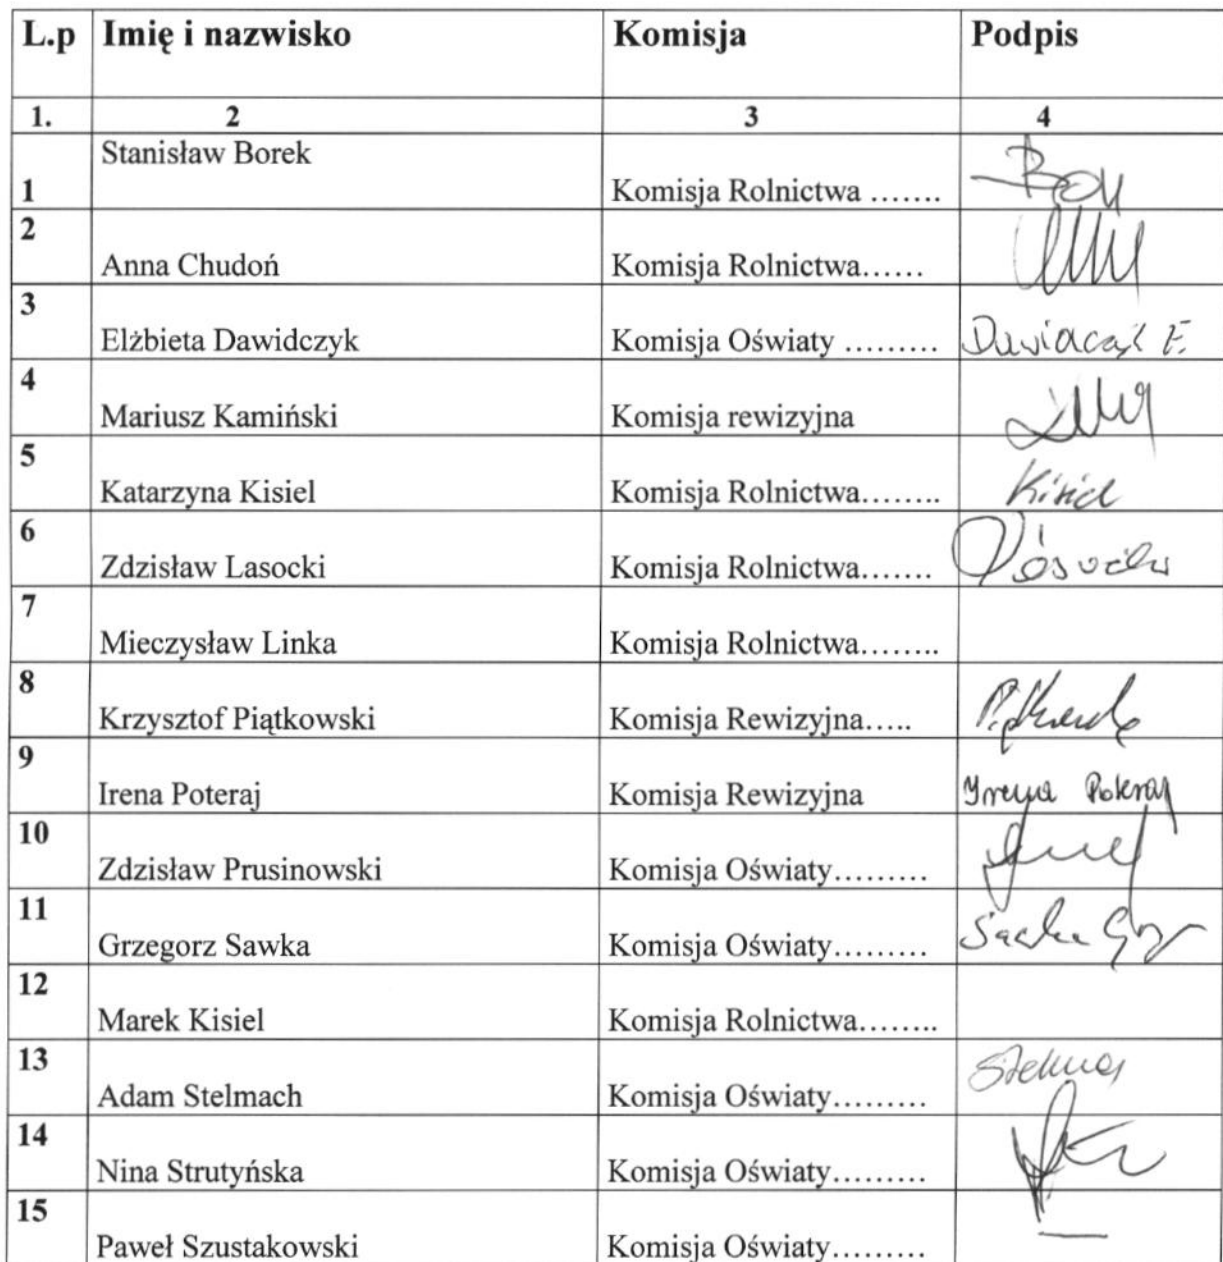 L.p Imię i nazwisko Komisja Podpis
1. 2 3 4
1 Stanisław Borek Komisja Rolnictwa ……..
2 Anna Chudoń Komisja Rolnictwa……
3 Elżbieta Dawidczyk Komisja Oświaty ……… Dawidczyk E.
4 Mariusz Kamiński Komisja rewizyjna
5 Katarzyna Kisiel Komisja Rolnictwa…….. Kisiel
6 Zdzisław Lasocki Komisja Rolnictwa…….
7 Mieczysław Linka Komisja Rolnictwa……..
8 Krzysztof Piątkowski Komisja Rewizyjna…..
9 Irena Poteraj Komisja Rewizyjna Irena Poteraj
10 Zdzisław Prusinowski Komisja Oświaty………
11 Grzegorz Sawka Komisja Oświaty……… Sawka
12 Marek Kisiel Komisja Rolnictwa……..
13 Adam Stelmach Komisja Oświaty………
14 Nina Strutyńska Komisja Oświaty………
15 Paweł Szustakowski Komisja Oświaty……… —